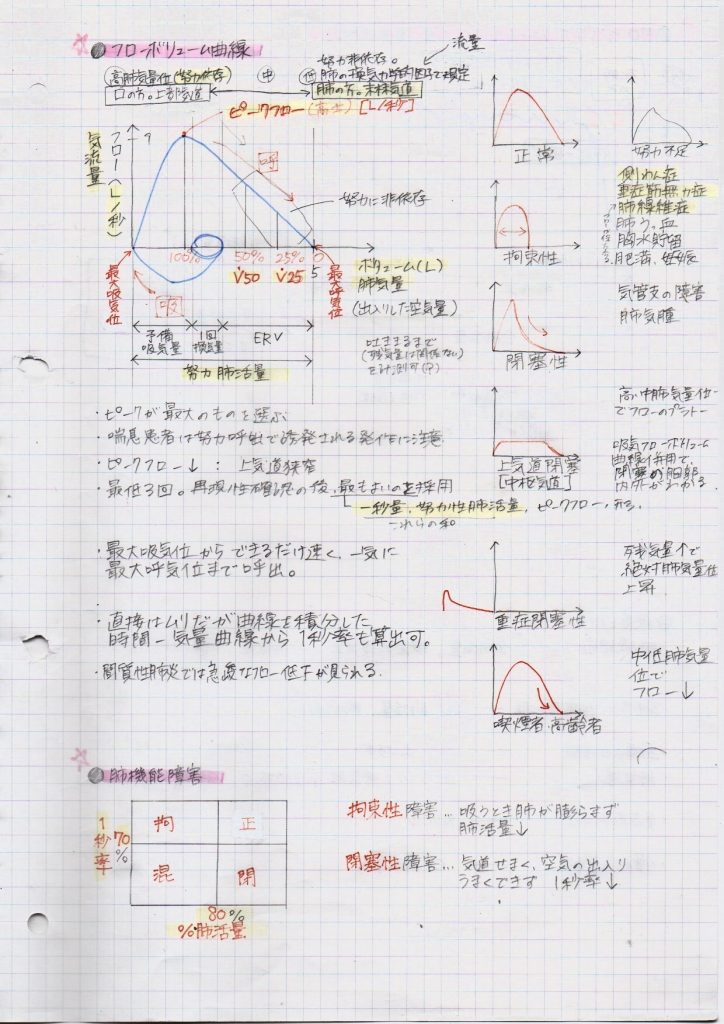 フローボリューム曲線
努力非依存。
流量
高肺気量位(努力依存)
中
低
口の方。上部気道
肺の方。末梢気道
ピークフロー(高さ)[L/秒]
気流量
フロー(L/秒)
呼
努力に非依存
100%
50%
25%
0
V̇50
V̇25
5
最大吸気位
吸
最大呼気位
ボリューム(L)
肺気量
(出入りした空気量)
予備吸気量
1回換気量
ERV
努力肺活量
吐ききるまで
(残気量は関係ない)
正常
努力不足
拘束性
側わん症
重症筋無力症
肺線維症
肺う。血
胸水貯留
肥満、妊娠
閉塞性
気管支の障害
肺気腫
上気道閉塞
[中枢気道]
高、中肺気量位
でフローのプラトー
吸気フローボリューム
曲線併用で、
閉塞が胸郭
内外かわかる。
・ピークが最大のものを選ぶ
・喘息患者は努力呼出で誘発される発作に注意
・ピークフロー↓ : 上気道狭窄
・最低3回。再現性確認の後、最もよいのを採用
一秒量、努力性肺活量、ピークフロー
これらの和
・最大吸気位からできるだけ速く、一気に
最大呼気位まで呼出。
・直接はムリだが曲線を積分した
時間ー気量曲線から1秒率も算出可。
・間質性肺炎では急峻なフロー低下が見られる。
重症閉塞性
残気量↑で
絶対肺気量位
上昇
喫煙者、高齢者
中低肺気量
位で
フロー↓
肺機能障害
1秒率
70%
拘
正
混
閉
80%
%肺活量
拘束性障害…吸うとき肺が膨らまず
肺活量↓
閉塞性障害…気道せまく、空気の出入り
うまくできず 1秒率↓